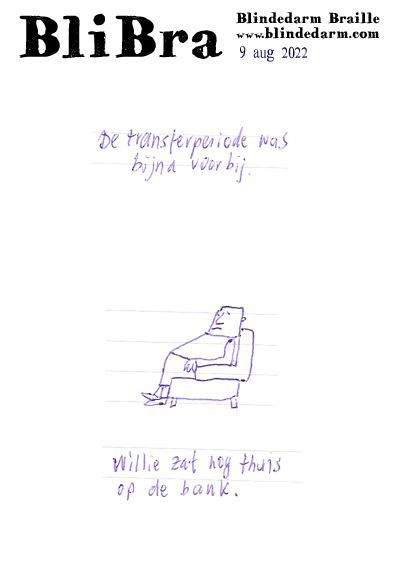 BliBra
Blindedarm Braille
www.blindedarm.com
9 aug 2022
De transferperiode was
bijna voorbij.
Willie zat nog thuis
op de bank.